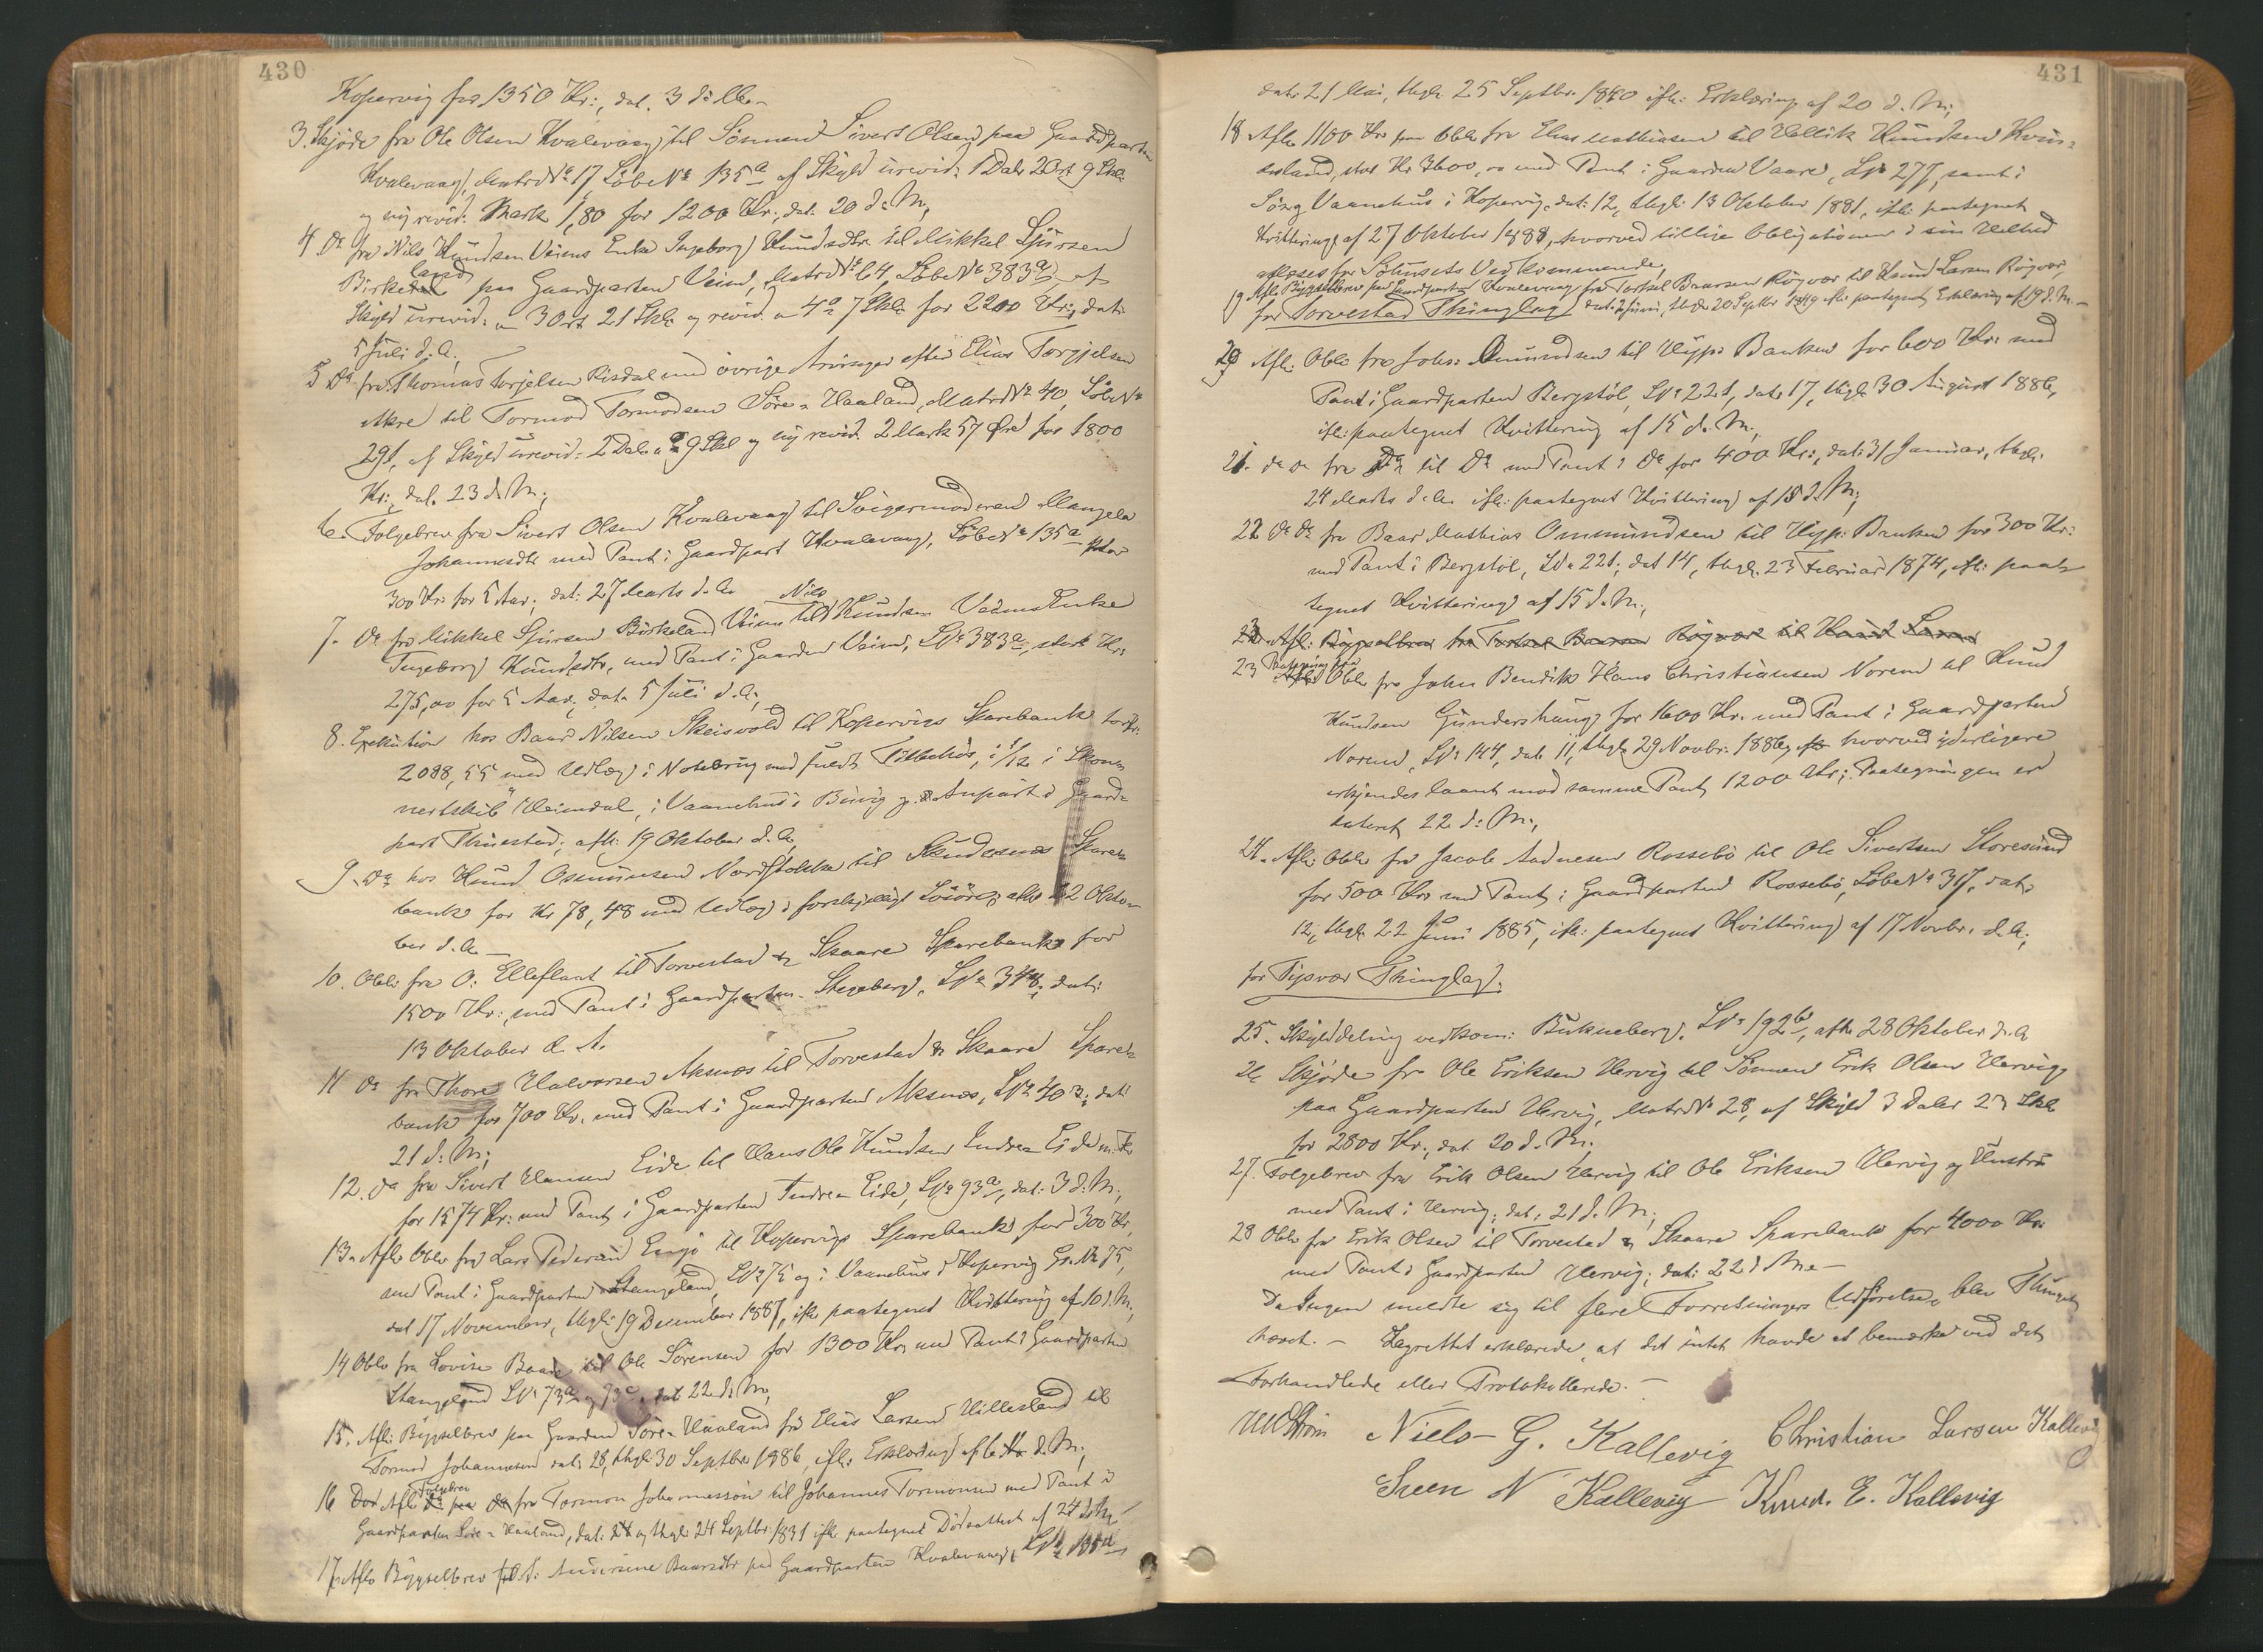 430
Kopervig for 1350 Kr:, dat. 3 d: M.-
3. Skjöde fra Ole Olsen Kvalevaag til Sönnen Sivert Olsen paa Gaardparten
Kvalevaag, Matr.No. 17, Löbe No. 135a af Skyld urevid: 1 Daler 2 Ort 9 Skl:
og ny revid: Mark 1,80 for 1200 Kr:, dat: 20 d: M.,
4 Do. fra Nils Knudsen Veims Enke Ingeborg Knudsdtr. til Mikkel Sjursen
Birkeland paa Gaardparten Veim, Matr.No. 64, Löbe No. 383a, af
Skyld urevid: 3 Ort 21 Skl: og revid. 4 7 Skl: for 2200 Kr:, dat:
5 Juli d. A.,
5 Do. fra Thomas Torjelsen Risdal med övrige Arvinger efter Elias Torgjelsen
Akre til Tormod Tormodsen Söre-Haaland, Matr.No. 40, Löbe No.
291, af Skyld urevid: 2 Daler 9 Skl og ny revid. 2 Mark 57 Öre for 1800
Kr:, dat. 23 d. M.,
6. Folgebrev fra Sivert Olsen Kvalevaag til Svigermoderen Mangela
Johannesdtr med Pant i Gaardpart Kvalevaag, Löbe No. 135a, stor
300 Kr: for 5 Aar, dat: 27 Marts d. A.
7. Do. fra Mikkel Sjursen Birkeland Veim til Nils Knudsen Veims Enke
Ingeborg Knudsdtr, med Pant i Gaarden Veim, LNo. 383a, stort Kr:
275,00 for 5 Aar, dat. 5 Juli d. A.,
8. Exekution hos Baar Nilsen Skeisvold til Kopervigs Sparebank for Kr:
2088,55 med Udlæg i Notebrug med fuldt Tilbehör, i 1/12 i Skon-
nertskib "Heimdal", i Vaanehus i Buvig og Anpart i Gaard-
part Thuestad; afh: 19 Oktober d. A.
9. Do. hos Knud Osmundsen Nordstokke til Skudesnes Spare-
bank for Kr 78,48 med Udlæg i forskjelligt Lösöre; afh: 22 Okto-
ber d. A.-
10. Obl: fra O: Elleflaat til Torvestad & Skaare Sparebank for
1500 Kr:, med Pant i Gaardparten Stegeberg, LNo. 348; dat:
13 Oktober d. A.
11 Do. fra Thore Halvorsen Aksnæs til Torvestad & Skaare Spare-
bank for 700 Kr. med Pant i Gaardparten Aksnæs, LNo. 403; dat:
21 d: M.;
12. Do. fra Sivert Hansen Eide til Hans Ole Knudsen Indre-Eide m. fl.
for 1574 Kr: med Pant i Gaardparten Indre-Eide, LNo. 93a, dat: 3 d. M.,
13. Afl. Obl. fra Lars Pedersen Engö til Kopervigs Sparebank for 300 Kr,
med Pant i Gaardparten Stangeland, LNo. 75 og i Vaanehus i Kopervig Gr.No. 75,
dat 17 November, thgl: 19 December 1887, ifl: paategnet Kvittering af 10 d. M,
14 Obl. fra Lovise Baade til Ole Sörensen for 1300 Kr. med Pant i Gaardparten
Stangeland LNo. 73a og 73c, dat 22 d. M,
15. Afl: Bygselbrev paa Gaarden Söre-Haaland fra Elias Larsen Hillesland til
Tormod Johannesen dat: 28, thgl: 30 Septbr. 1886, ifl: Erklæring af 6 d. M.;
16 Do. Afl: Folgebrev fra Tormon Johannesson til Johannes Tormonsen med Pant i
Gaardparten Söre-Haaland, dat: 24 og thgl: 24 Septbr. 1831 ifl: paategnet Dödsattest af 24 d. M.
17. Afl. Bygselbrev til A: Andersine Baarsdtr paa Gaardparten Kvalevaag, LNo. 135a
431
dat. 21 Mai, thgl: 25 Septbr. 1840 ifl: Erklæring af 20 d. M.;
18 Afl: 1100 Kr paa Obl. fra Elias Mathiasen til Vallik Knudsen Kvins-
land, stor Kr. 3600,00 med Pant i Gaarden Vaare, LNo 277, samt i
Sög Vaanehus i Kopervig, dat: 12, thgl: 13 Oktober 1881, ifl: paategnet
Kvittering af 27 Oktober 1888, hvorved tillige Obligationen i sin Helhed
aflæses for Söhusets Vedkommende,
19 Afl. Bygselbrev paa Gaardparten Kvalevaag fra Torkel Baarsen Rögvær til Knud Larsen Rögvær,
dat: 2 Juni, thgl: 20 Septbr 1849 ifl: paategnet Erklæring af 19 d. M.-
for Torvestad Thinglag
20 Afl: Obl: fra Johs: Omundsen til Hyp: Banken for 600 Kr: med
Pant i Gaardparten Bergstöl, LNo 221, dat: 17, thgl: 30 August 1886,
ifl: paategnet Kvittering af 15 d. M.,
21. do do fra Do til Do med Pant i Do for 400 Kr:, dat: 31 Januar, thgl:
24 Marts d. A. ifl: paategnet Kvittering af 15 d. M.;
22 Do Do fra Baar Mathias Ommundsen til Hyp: Banken for 300 Kr:
med Pant i Bergstöl, LNo 221; dat 14, thgl: 23 Februar 1874, ifl: paa-
tegnet Kvittering af 15 d. M.,
23. Afl: Bygselbrev fra Torkel Baarsen Rögvær til Knud Larsen
23 Paategning paa Obl. fra John Bendik Hans Christiansen Norem til Knud
Knudsen Gundershaug for 1600 Kr. med Pant i Gaardparten
Norem, LNo 144, dat: 11, thgl: 29 Novbr. 1886, hvorved yderligere
erkjendes laant mod samme Pant 1200 Kr; Paategningen er
dateret 22 d: M.,
24. Afl: Obl: fra Jacob Aadnesen Rossebö til Ole Sivertsen Storesund
for 500 Kr: med Pant i Gaardparten Rossebö, Löbe No 317, dat:
12, thgl: 22 Juni 1885, ifl: paategnet Kvittering af 17 Novbr. d. A.;
for Tysvær Thinglag:
25. Skylddeling vedkom: Bukneberg. LNo 192b, afh: 28 Oktober d. A
26 Skjöde fra Ole Eriksen Hervig til Sönnen Erik Olsen Hervig
paa Gaardparten Hervig, Matr.No 28, af Skyld 3 Daler 23 Skl.
for 2800 Kr., dat. 20 d. M.;
27. Folgebrev fra Erik Olsen Hervig til Ole Eriksen Hervig og Hustru
med Pant i Hervig; dat: 21 d. M;
28 Obl: fra Erik Olsen til Torvestad & Skaare Sparebank for 4000 Kr:
med Pant i Gaardparten Hervig; dat: 22 d. M.-
Da Ingen meldte sig til flere Forretningers Udförelse, blev Thinget
hævet. - Lagrettet erklærede, at det intet havde at bemærke ved det
Forhandlede eller Protokollerede.-
Niels G. Kallevig Christian Larsen Kallevig
Sveen N Kallevig Knud. E. Kallevig